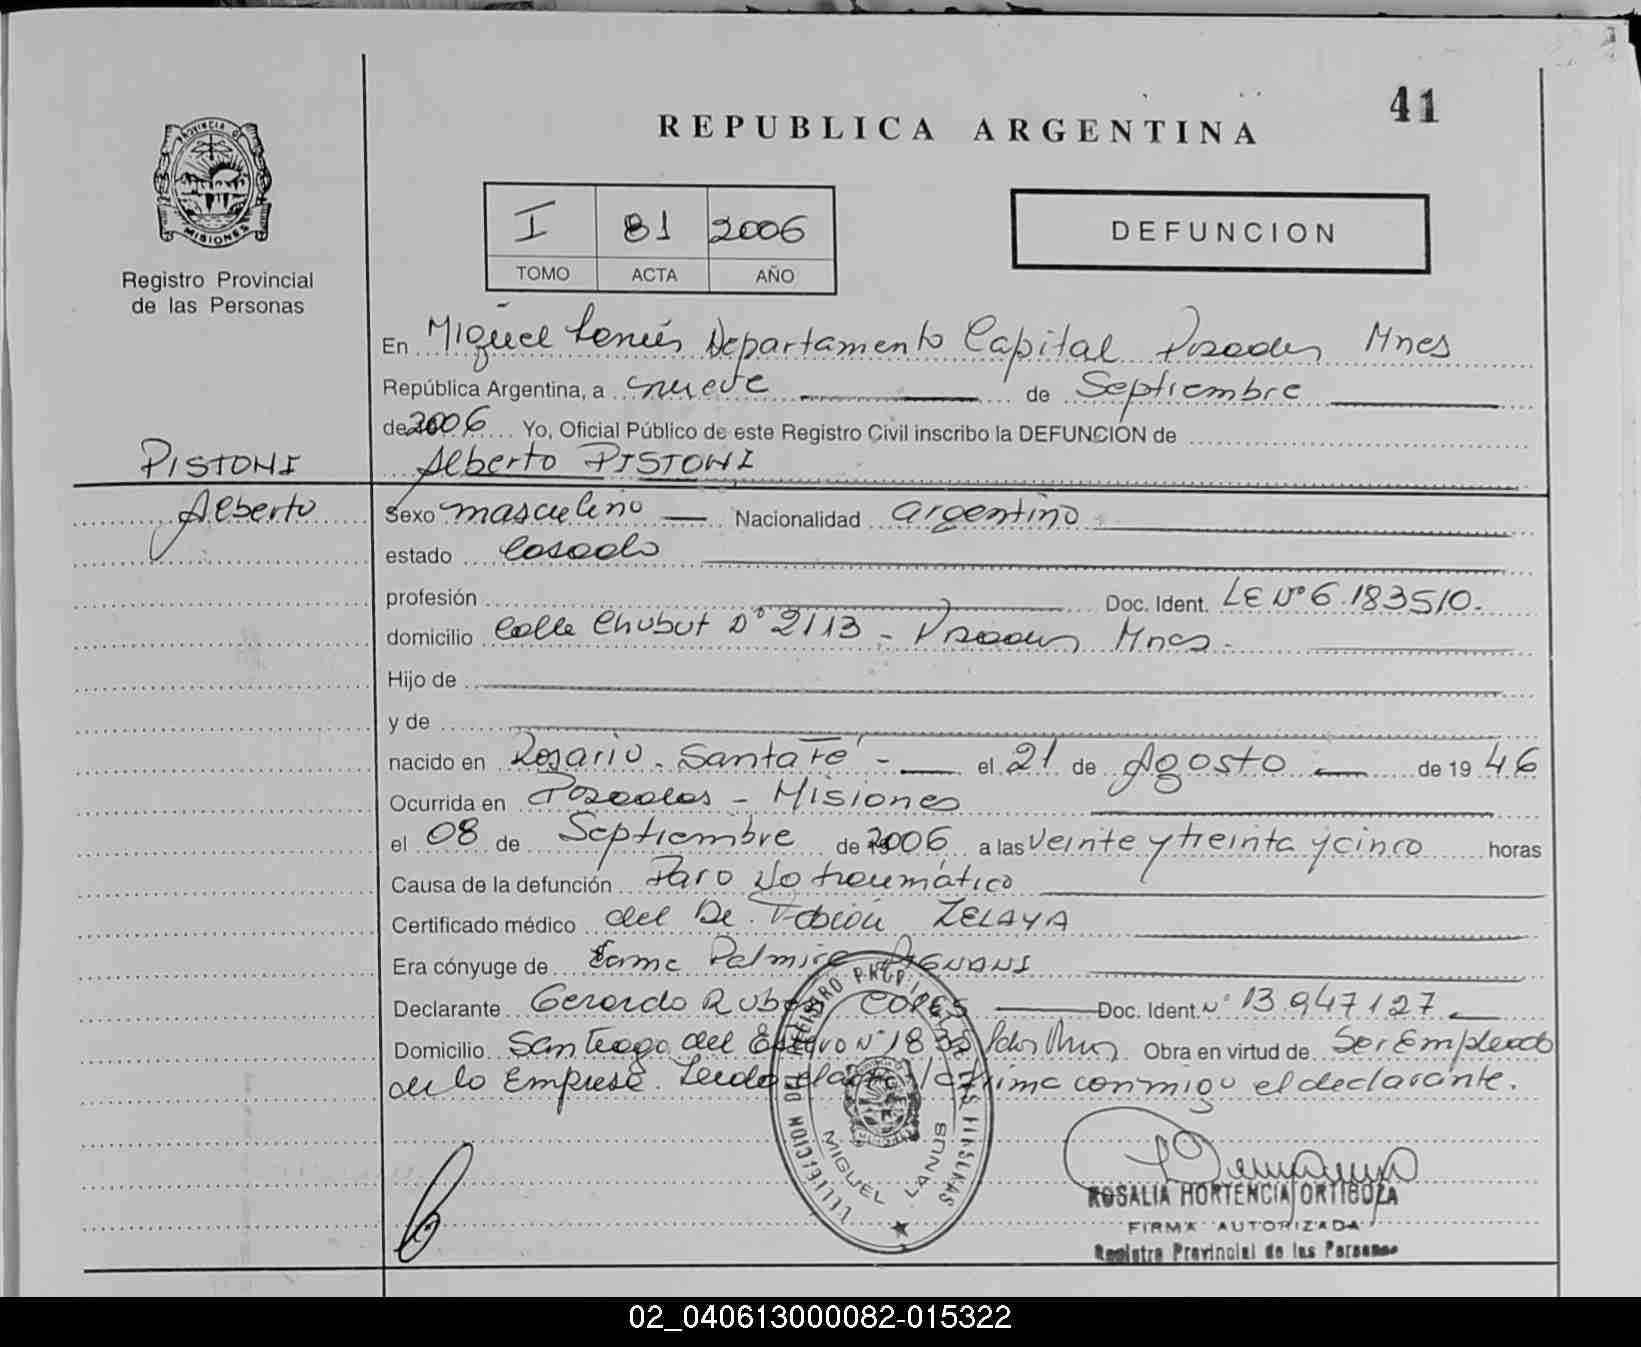 41
REPUBLICA ARGENTINA
PROVINCIA DE
MISIONES
Registro Provincial
de las Personas
I 81 2006
TOMO ACTA AÑO
DEFUNCION
En Miguel Lanús Departamento Capital Posadas Mnes
República Argentina, a nueve de Septiembre
de 2006 Yo, Oficial Público de este Registro Civil inscribo la DEFUNCION de
PISTONI Alberto PISTONI
Alberto Sexo masculino Nacionalidad argentino
estado Casado
profesión Doc. Ident. LE Nº 6.183510.
domicilio Calle Chubut Nº 2113 - Posadas Mnes -
Hijo de
y de
nacido en Rosario - Santa Fé - el 21 de Agosto de 19 46
Ocurrida en Posadas - Misiones
el 08 de Septiembre de 2006 a las veinte y treinta y cinco horas
Causa de la defunción Paro No traumático
Certificado médico del Dr. Fabián ZELAYA
Era cónyuge de Palmira
Declarante Gerardo Rubén Doc. Ident. Nº 13.947127
Domicilio Santiago del Estero Nº 18 Obra en virtud de Ser Empleado
de la Empresa. Leída el acta la firma conmigo el declarante.
DELEGACION DEL REGISTRO PROVINCIAL DE LAS PERSONAS
MIGUEL LANUS
ROSALIA HORTENCIA ORTIGOZA
FIRMA AUTORIZADA
Registro Provincial de las Personas
02_040613000082-015322